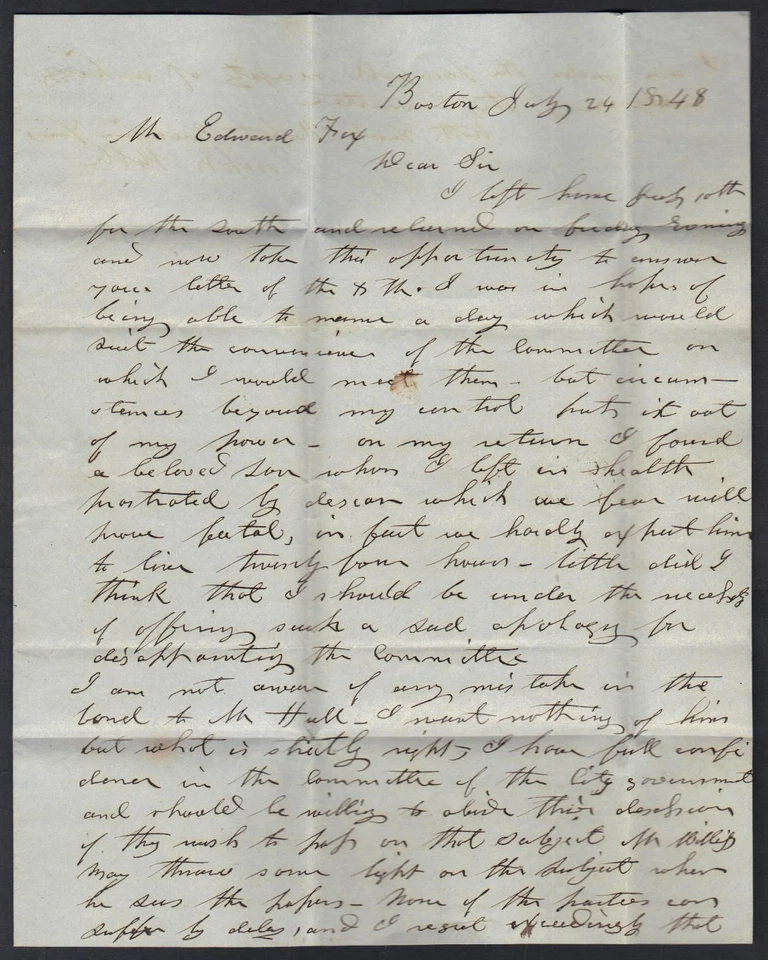 Boston July 24 1848
Mr Edward Fox
Dear Sir
I left home July 10th
for the south and returned on friday Evening
and now take this opportunity to answer
your letter of the 8 th. I was in hopes of
being able to name a day which would
suit the convenience of the Committee on
which I would meet them - but circum-
stances beyond my control puts it out
of my power - on my return I found
a beloved son whom I left in health
prostrated by desease which we fear will
prove fatal, in fact we hardly expect him
to live twenty four hours - little did I
think that I should be under the necessity
of offering such a sad apology for
disappointing the Committee
I am not aware of any mistake in the
bond to Mr Hall - I want nothing of him
but what is strictly right, I have full confi
dence in the Committee of the City government
and should be willing to abide their
if they wish to pass on that subject Mr Willis
may throw some light on the subject when
he sees the papers - None of the parties can
suffer by delay, and I regret exceedingly that